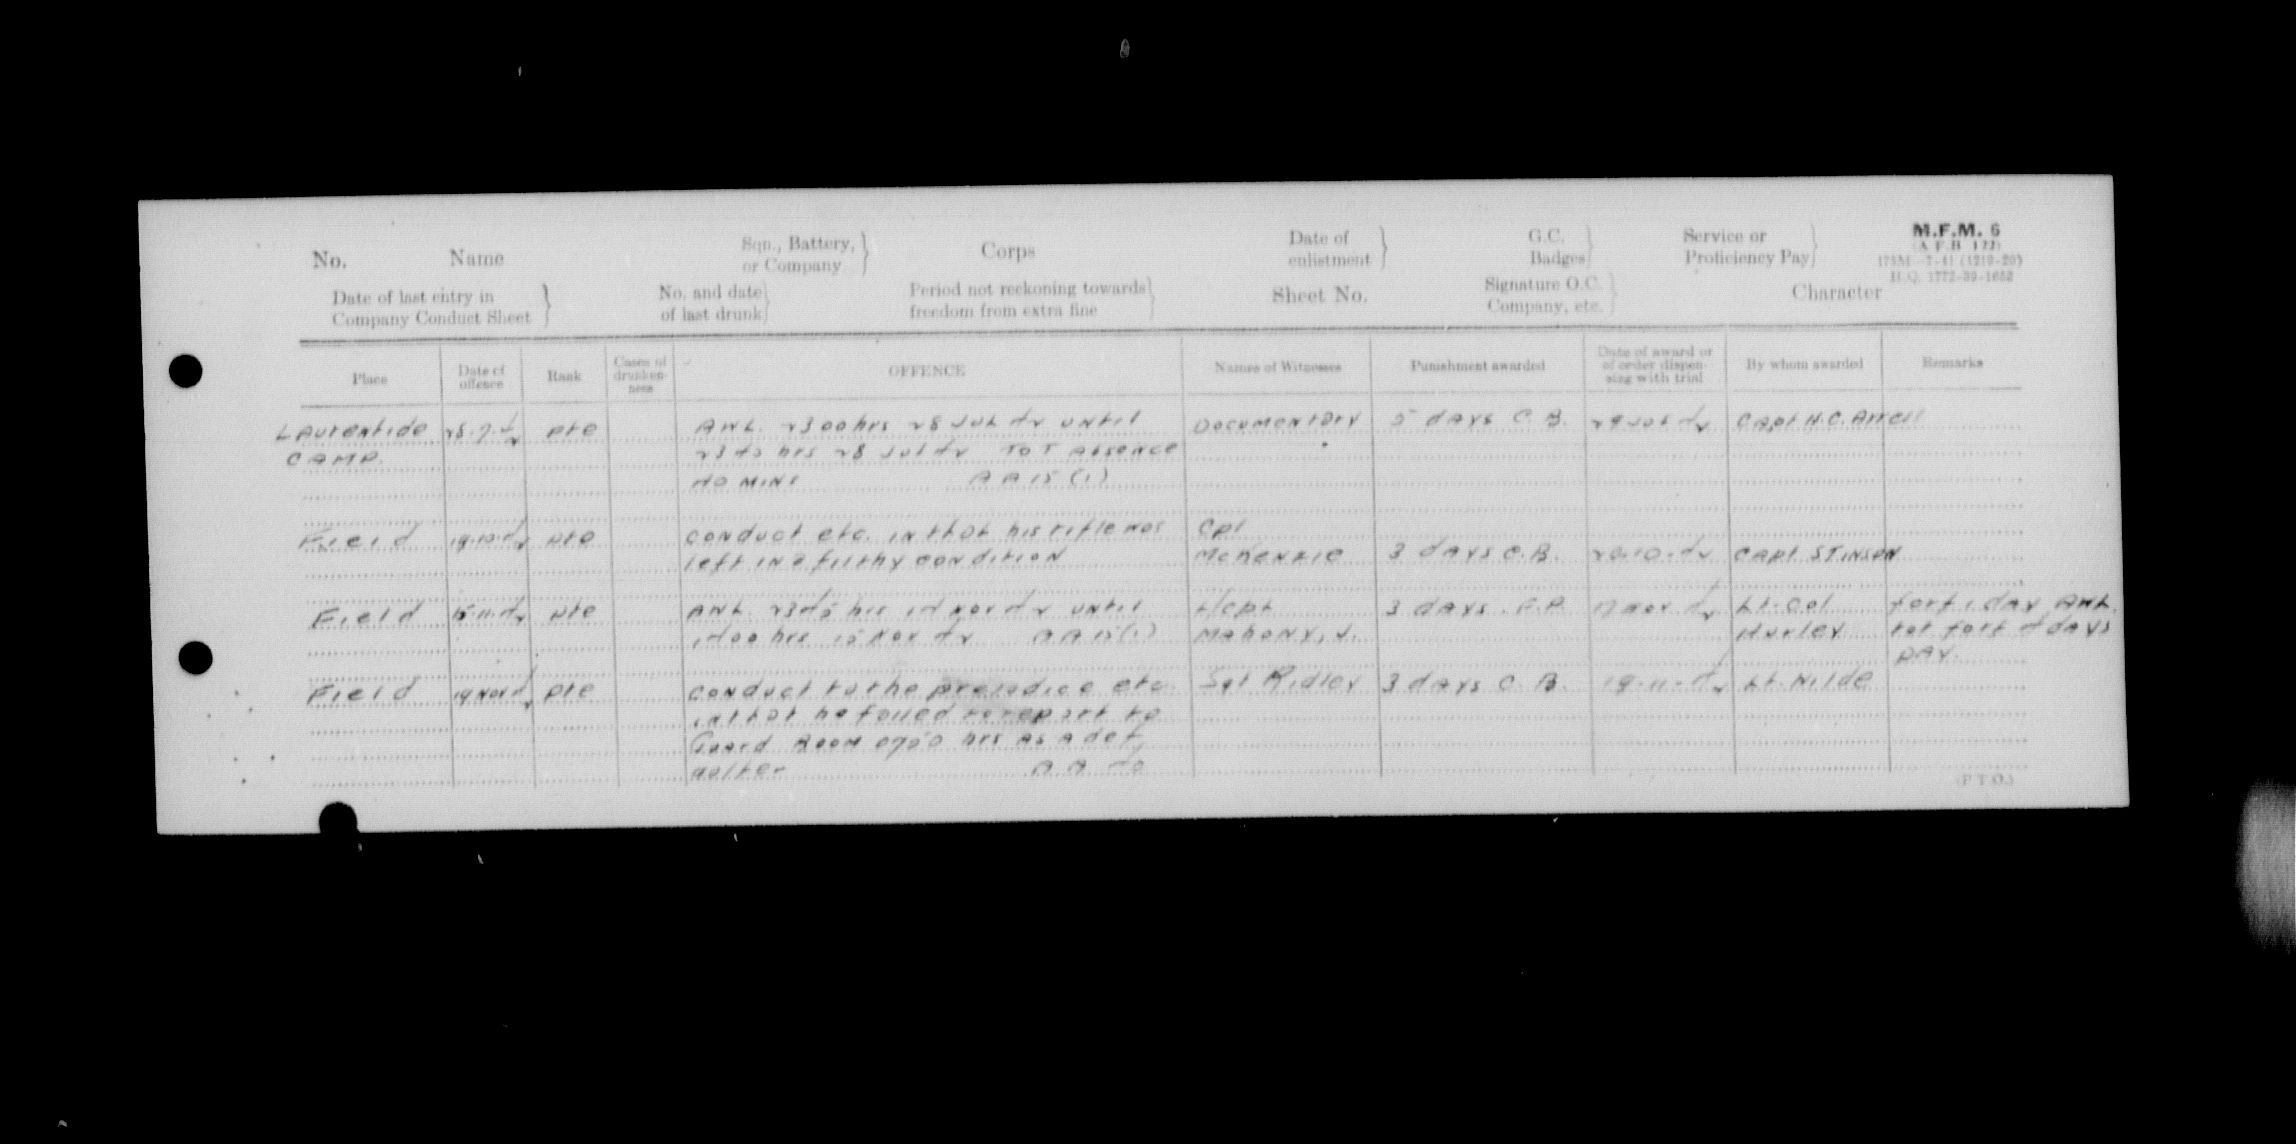 M.F.M. 6
(A.F.B. 122)
175M—7-41 (1219-20)
H.Q. 1772-39-1652
No. Name Sqn., Battery, or Company Corps Date of enlistment G.C. Badges Service or Proficiency Pay
Date of last entry in Company Conduct Sheet No. and date of last drunk Period not reckoning towards freedom from extra fine Sheet No. Signature O.C. Company, etc. Character
Place Date of offence Rank Cases of drunkenness OFFENCE Names of Witnesses Punishment awarded Date of award or of order dispensing with trial By whom awarded Remarks
Laurentide 28.7.42 Pte AWL. 2300 hrs 28 Jul 42 until Documentary 5 days C.B. 29 Jul 42 Capt H.C. Arrell
CAMP. 2340 hrs 28 Jul 42 TOT Absence
40 mins A A 15 (1)
Field 19.10.42 Pte conduct etc. in that his rifle was Cpl
left in a filthy condition McKenzie 3 days C.B. 20-10-42 Capt. STINSON
Field 15.11.42 Pte AWL. 2345 hrs 14 Nov 42 until L/Cpl 3 days F.P. 17 Nov. 42 Lt. Col forf 1 day AWL.
1400 hrs 15 Nov 42 A A 15(1) Mahony, J. Hurley tot forf 4 days
PAY.
Field 19 Nov 42 Pte conduct to the prejudice etc. Sgt Ridley 3 days C.B. 19-11-42 Lt. Wilde
in that he failed to report to
Guard Room 0750 hrs as a def
aulter A A 40
(P.T.O.)